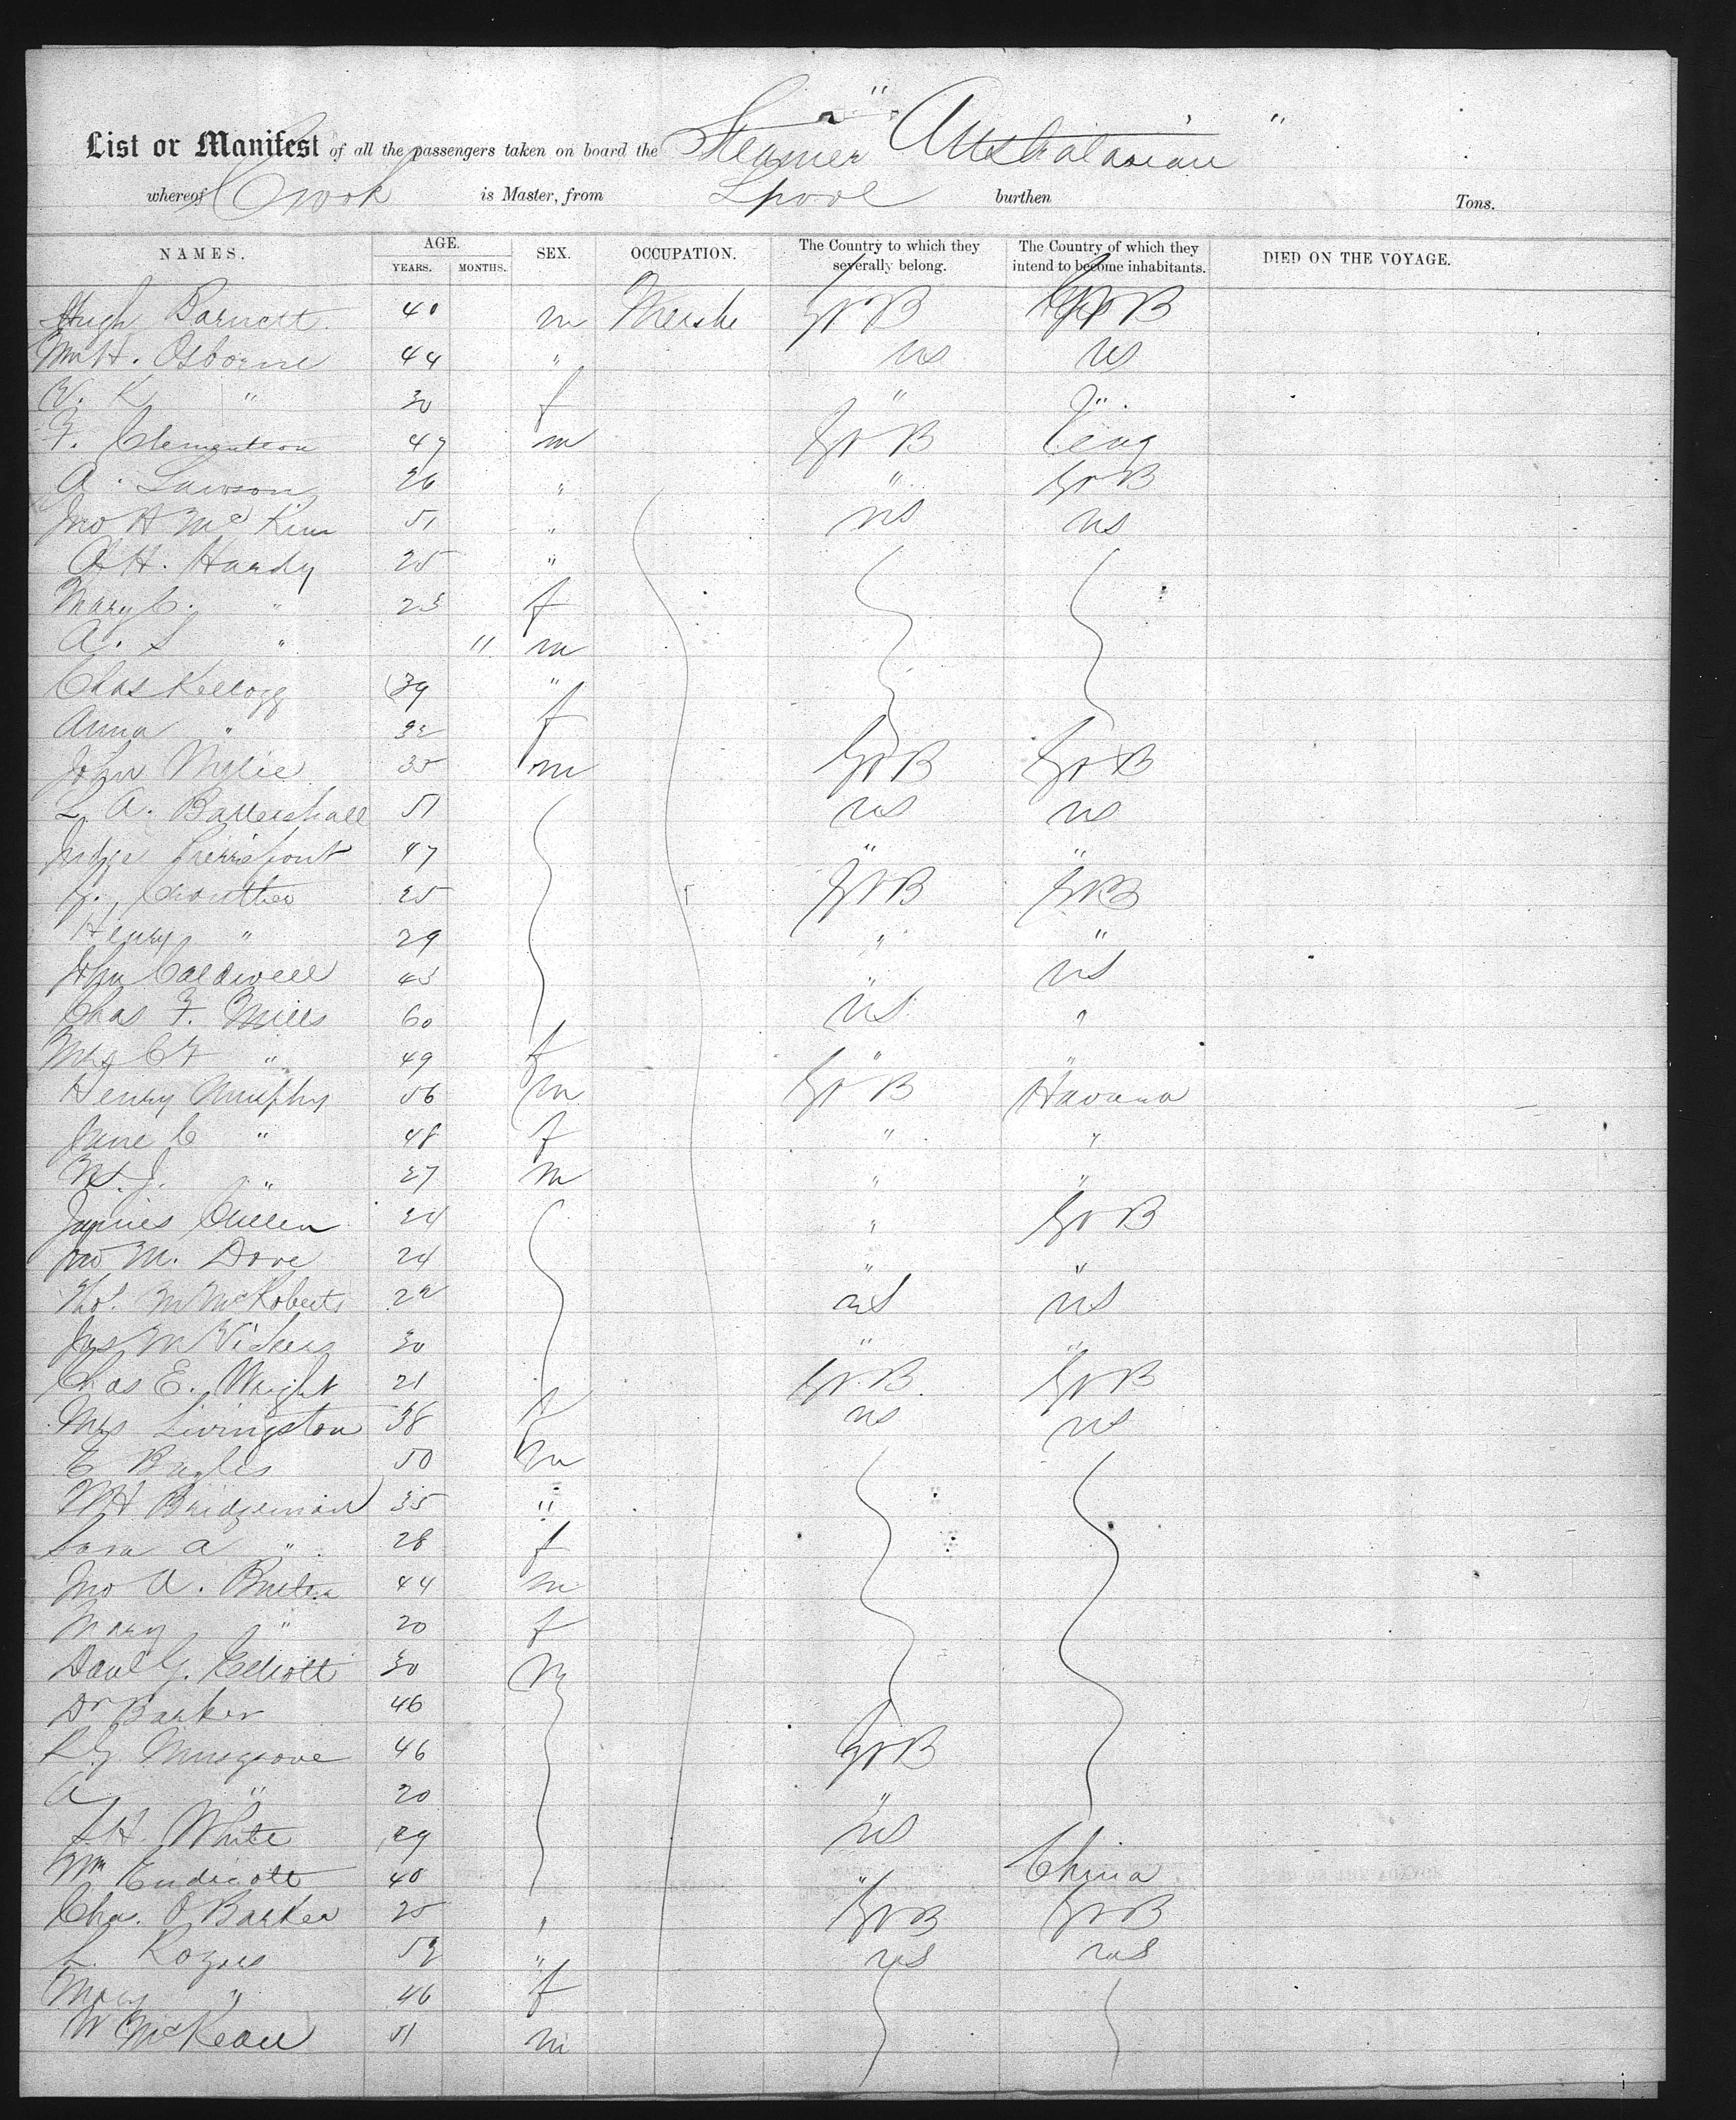 List or Manifest of all the passengers taken on board the Steamer "Australasian"
whereof Cook is Master, from Lpool burthen Tons.
NAMES. AGE. SEX. OCCUPATION. The Country to which they severally belong. The Country of which they intend to become inhabitants. DIED ON THE VOYAGE.
YEARS. MONTHS.
Hugh Barnett 40 m GrB GrB
Wm H. Osborne 44 " US US
V. K " 30 f " "
F. Clementson 47 m GrB
A. Lawson 26 " " GrB
Jno H McKim 51 " US US
A H. Hardy 25 "
Mary C. " 23 f
A. S " 11 m
Chas Kellogg 39 "
Anna " 32 f
John Wylie 35 m GrB GrB
L. A. Battershall 51 US US
Judge Pierrepont 47 " "
G. Crowther 25 GrB GrB
Henry " 29 " "
John Caldwell 45 " US
Chas F. Mills 60 US "
Mrs C F " 49 f " "
Henry Murphy 56 m GrB Havana
Jane C " 48 f " "
J. " 27 m " "
James Cullen 24 " GrB
Jno M. Dove 24 " "
Thos. M McRoberts 22 US US
Jas M Vickers 30 " "
Chas E. Wright 21 GrB GrB
Mrs Livingston 38 f US US
E Bayles 50 m
W H Bridgeman 35 "
Sara A " 28 f
Jno A. Butler 44 m
Mary " 20 f
Danl G. Elliott 30 m
Dr Barker 46
R G Musgrove 46 GrB
A " 20 "
S H. White 29 US
Wm Endicott 40 " China
Chas. O Barker 25 " GrB GrB
L. Rogers 52 " US US
Mary " 46 f
W McKean 51 m